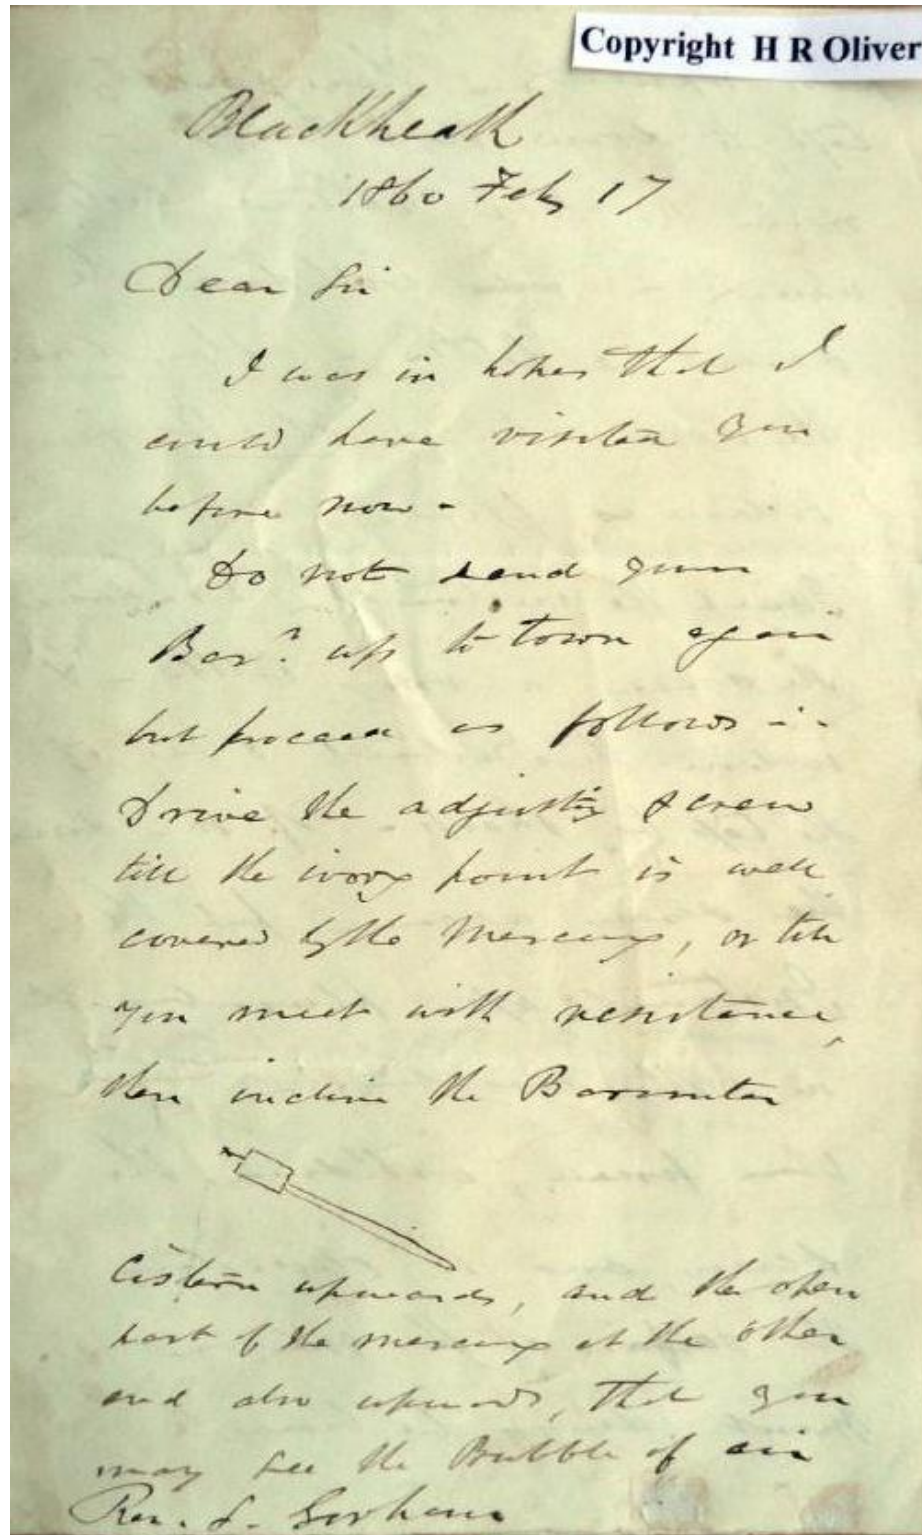 Copyright H R Oliver
Blackheath
1860 Feby 17
Dear Sir
I was in hopes that I
could have visited you
before now -
Do not send your
Barr. up to town again
but proceed as follows :-
Drive the adjusting screw
till the ivory point is well
covered by the Mercury, or till
you meet with resistance,
then incline the Barometer
Cistern upwards, and the open
part of the mercury at the other
end also upwards, that you
may see the Bubble of air
Rev. J. Gorham